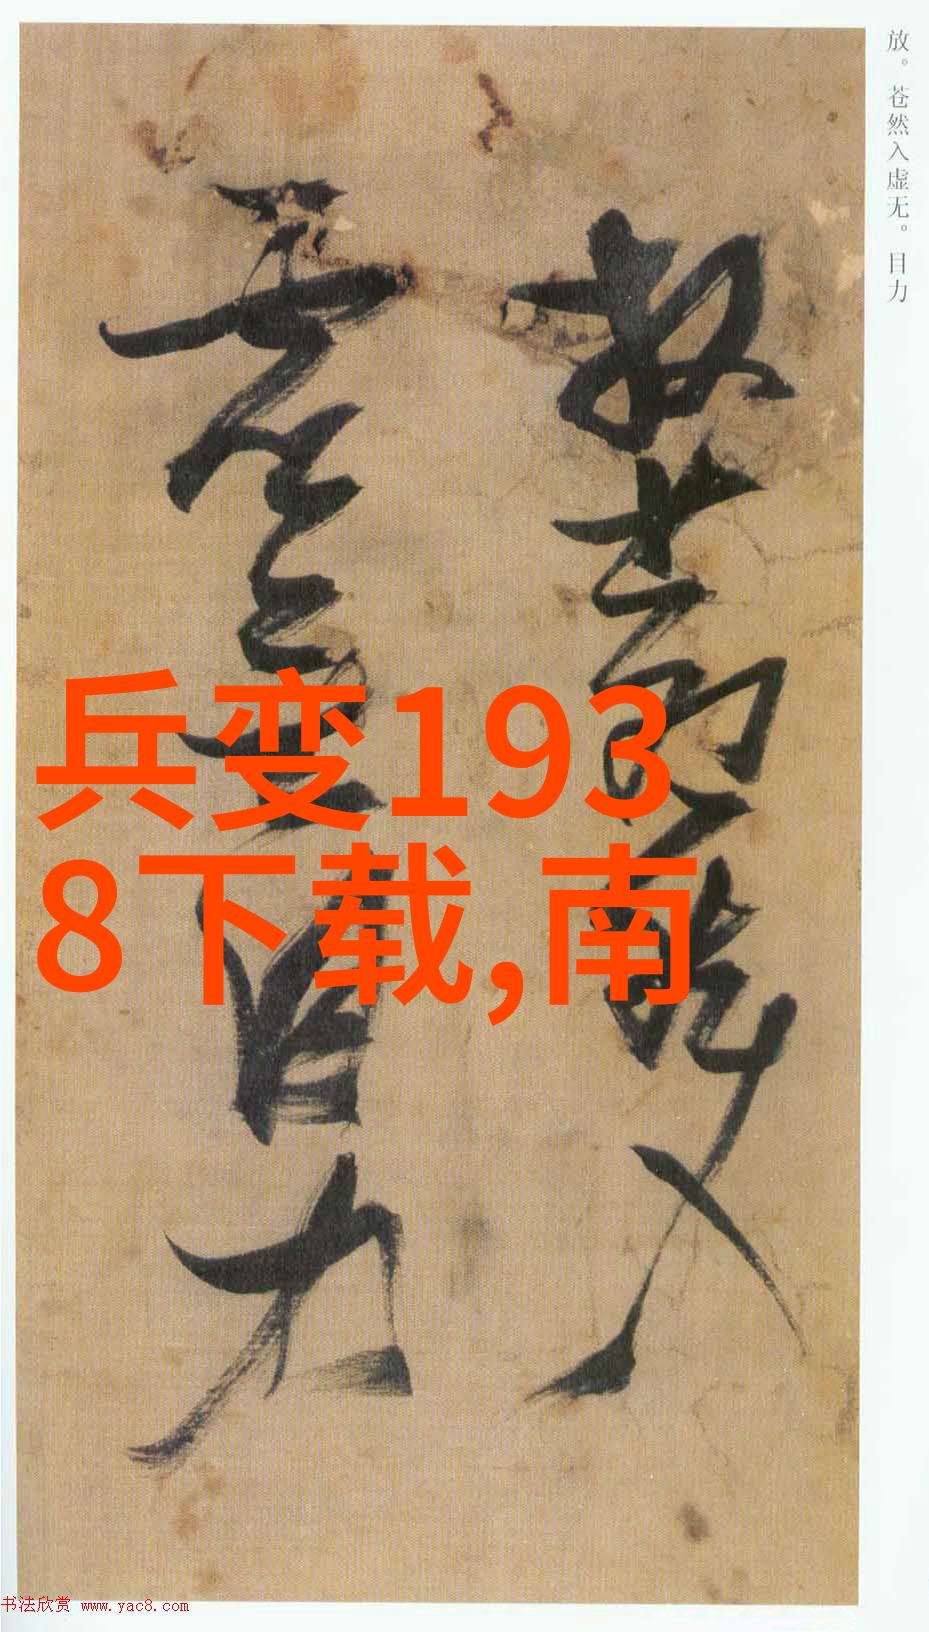 放。苍然入虚无。目力
放苍然入
虚无目力
兵变193
8下载,南
书法欣赏 www.yac8.com